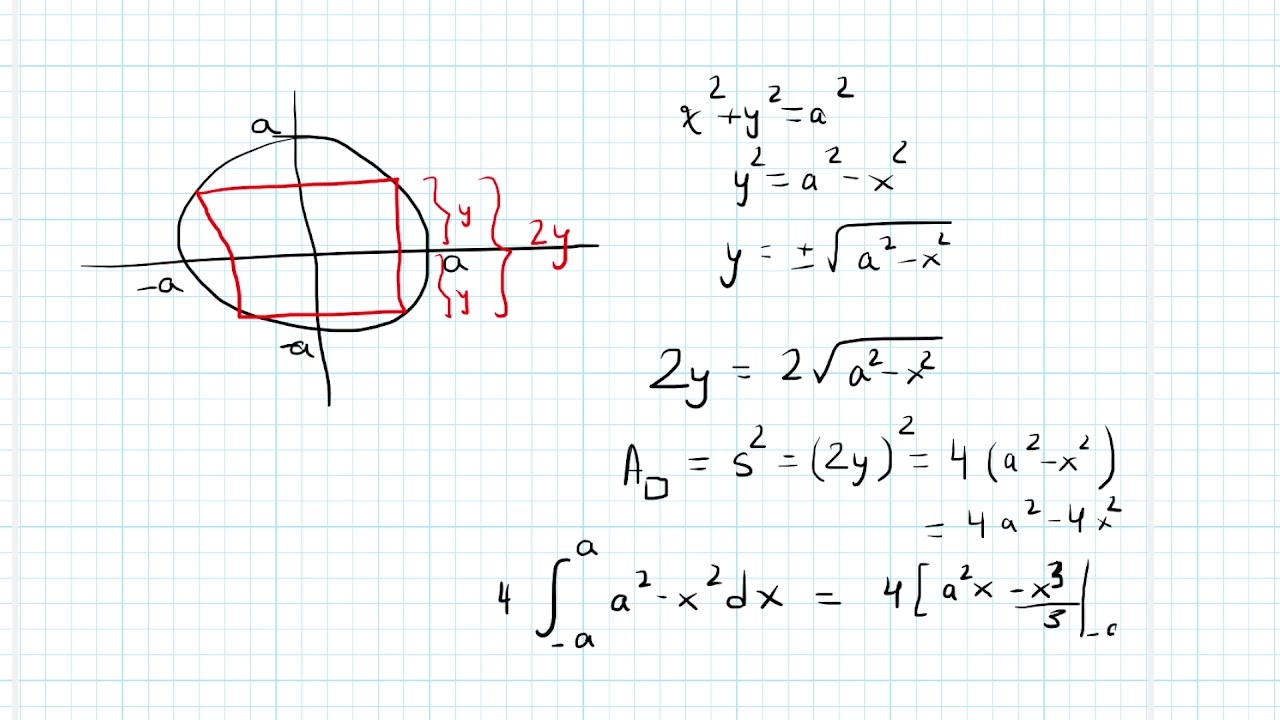 a
-a
a
-a
y
y
2y
x² + y² = a²
y² = a² - x²
y = ± √(a² - x²)
2y = 2√(a² - x²)
A□ = s² = (2y)² = 4(a² - x²)
= 4a² - 4x²
4 ∫_{-a}^{a} a² - x² dx = 4[a²x - x³/3 |_-